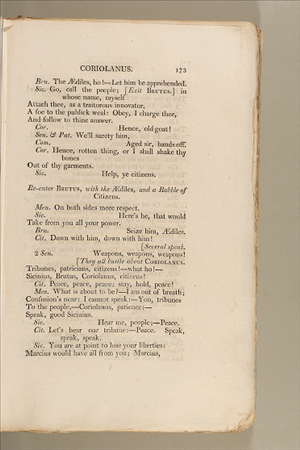 CORIOLANUS. 173
Bru. The Ædiles, ho!—Let him be apprehended.
Sic. Go, call the people; [Exit BRUTUS.] in
whose name, myself
Attach thee, as a traitorous innovator,
A foe to the publick weal: Obey, I charge thee,
And follow to thine answer.
Cor. Hence, old goat!
Sen. & Pat. We'll surety him,
Com. Aged sir, hands off.
Cor. Hence, rotten thing, or I shall shake thy
bones
Out of thy garments.
Sic. Help, ye citizens.
Re-enter BRUTUS, with the Ædiles, and a Rabble of
Citizens.
Men. On both sides more respect.
Sic. Here's he, that would
Take from you all your power.
Bru. Seize him, Ædiles.
Cit. Down with him, down with him!
[Several speak.
2 Sen. Weapons, weapons, weapons!
[They all bustle about CORIOLANUS.
Tribunes, patricians, citizens!—what ho!—
Sicinius, Brutus, Coriolanus, citizens!
Cit. Peace, peace, peace; stay, hold, peace!
Men. What is about to be?—I am out of breath;
Confusion's near: I cannot speak:—You, tribunes
To the people,—Coriolanus, patience:—
Speak, good Sicinius.
Sic. Hear me, people;—Peace.
Cit. Let's hear our tribune:—Peace. Speak,
speak, speak.
Sic. You are at point to lose your liberties:
Marcius would have all from you; Marcius,